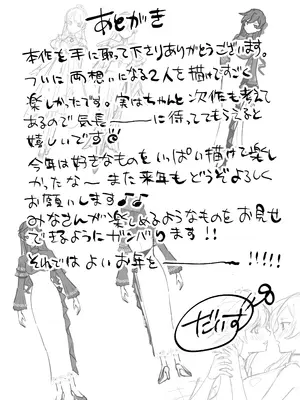 あとがき
本作を手に取って下さりありがとうございます。
ついに両想いになる2人を描けてすごく
楽しかったです。実はちゃんと次作も考えて
あるので気長———に待っててもらえると
嬉しいです
今年は好きなものをいっぱい描けて楽し
かったな〜 また来年もどうぞよろしく
お願いします♪♪
みなさんが楽しめるようなものをお見せ
できるようにガンバります!!
それでは よいお年を———!!!!!
だいず